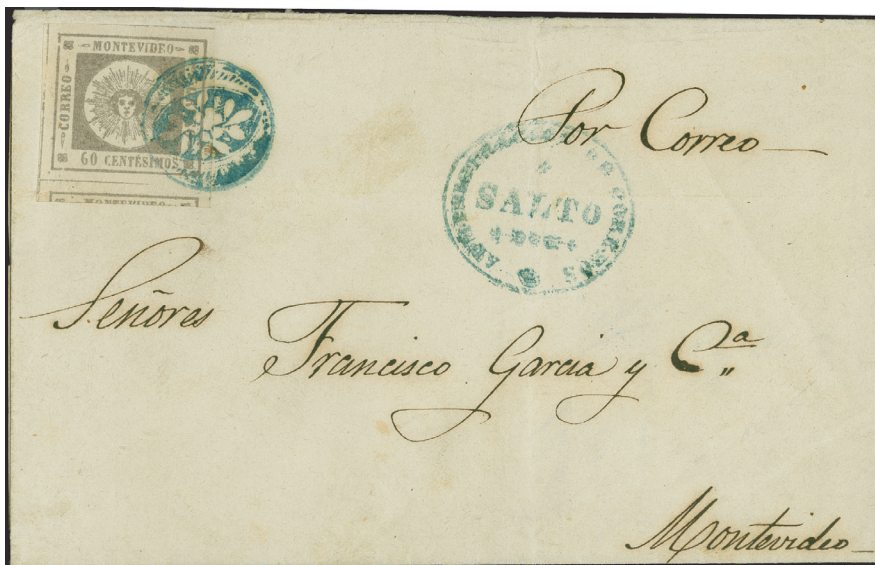 MONTEVIDEO
CORREO
60 CENTÉSIMOS
MONTEVIDEO
Por Correo
DE CORREOS
SALTO
Señores
Francisco Garcia y Cª
Montevideo